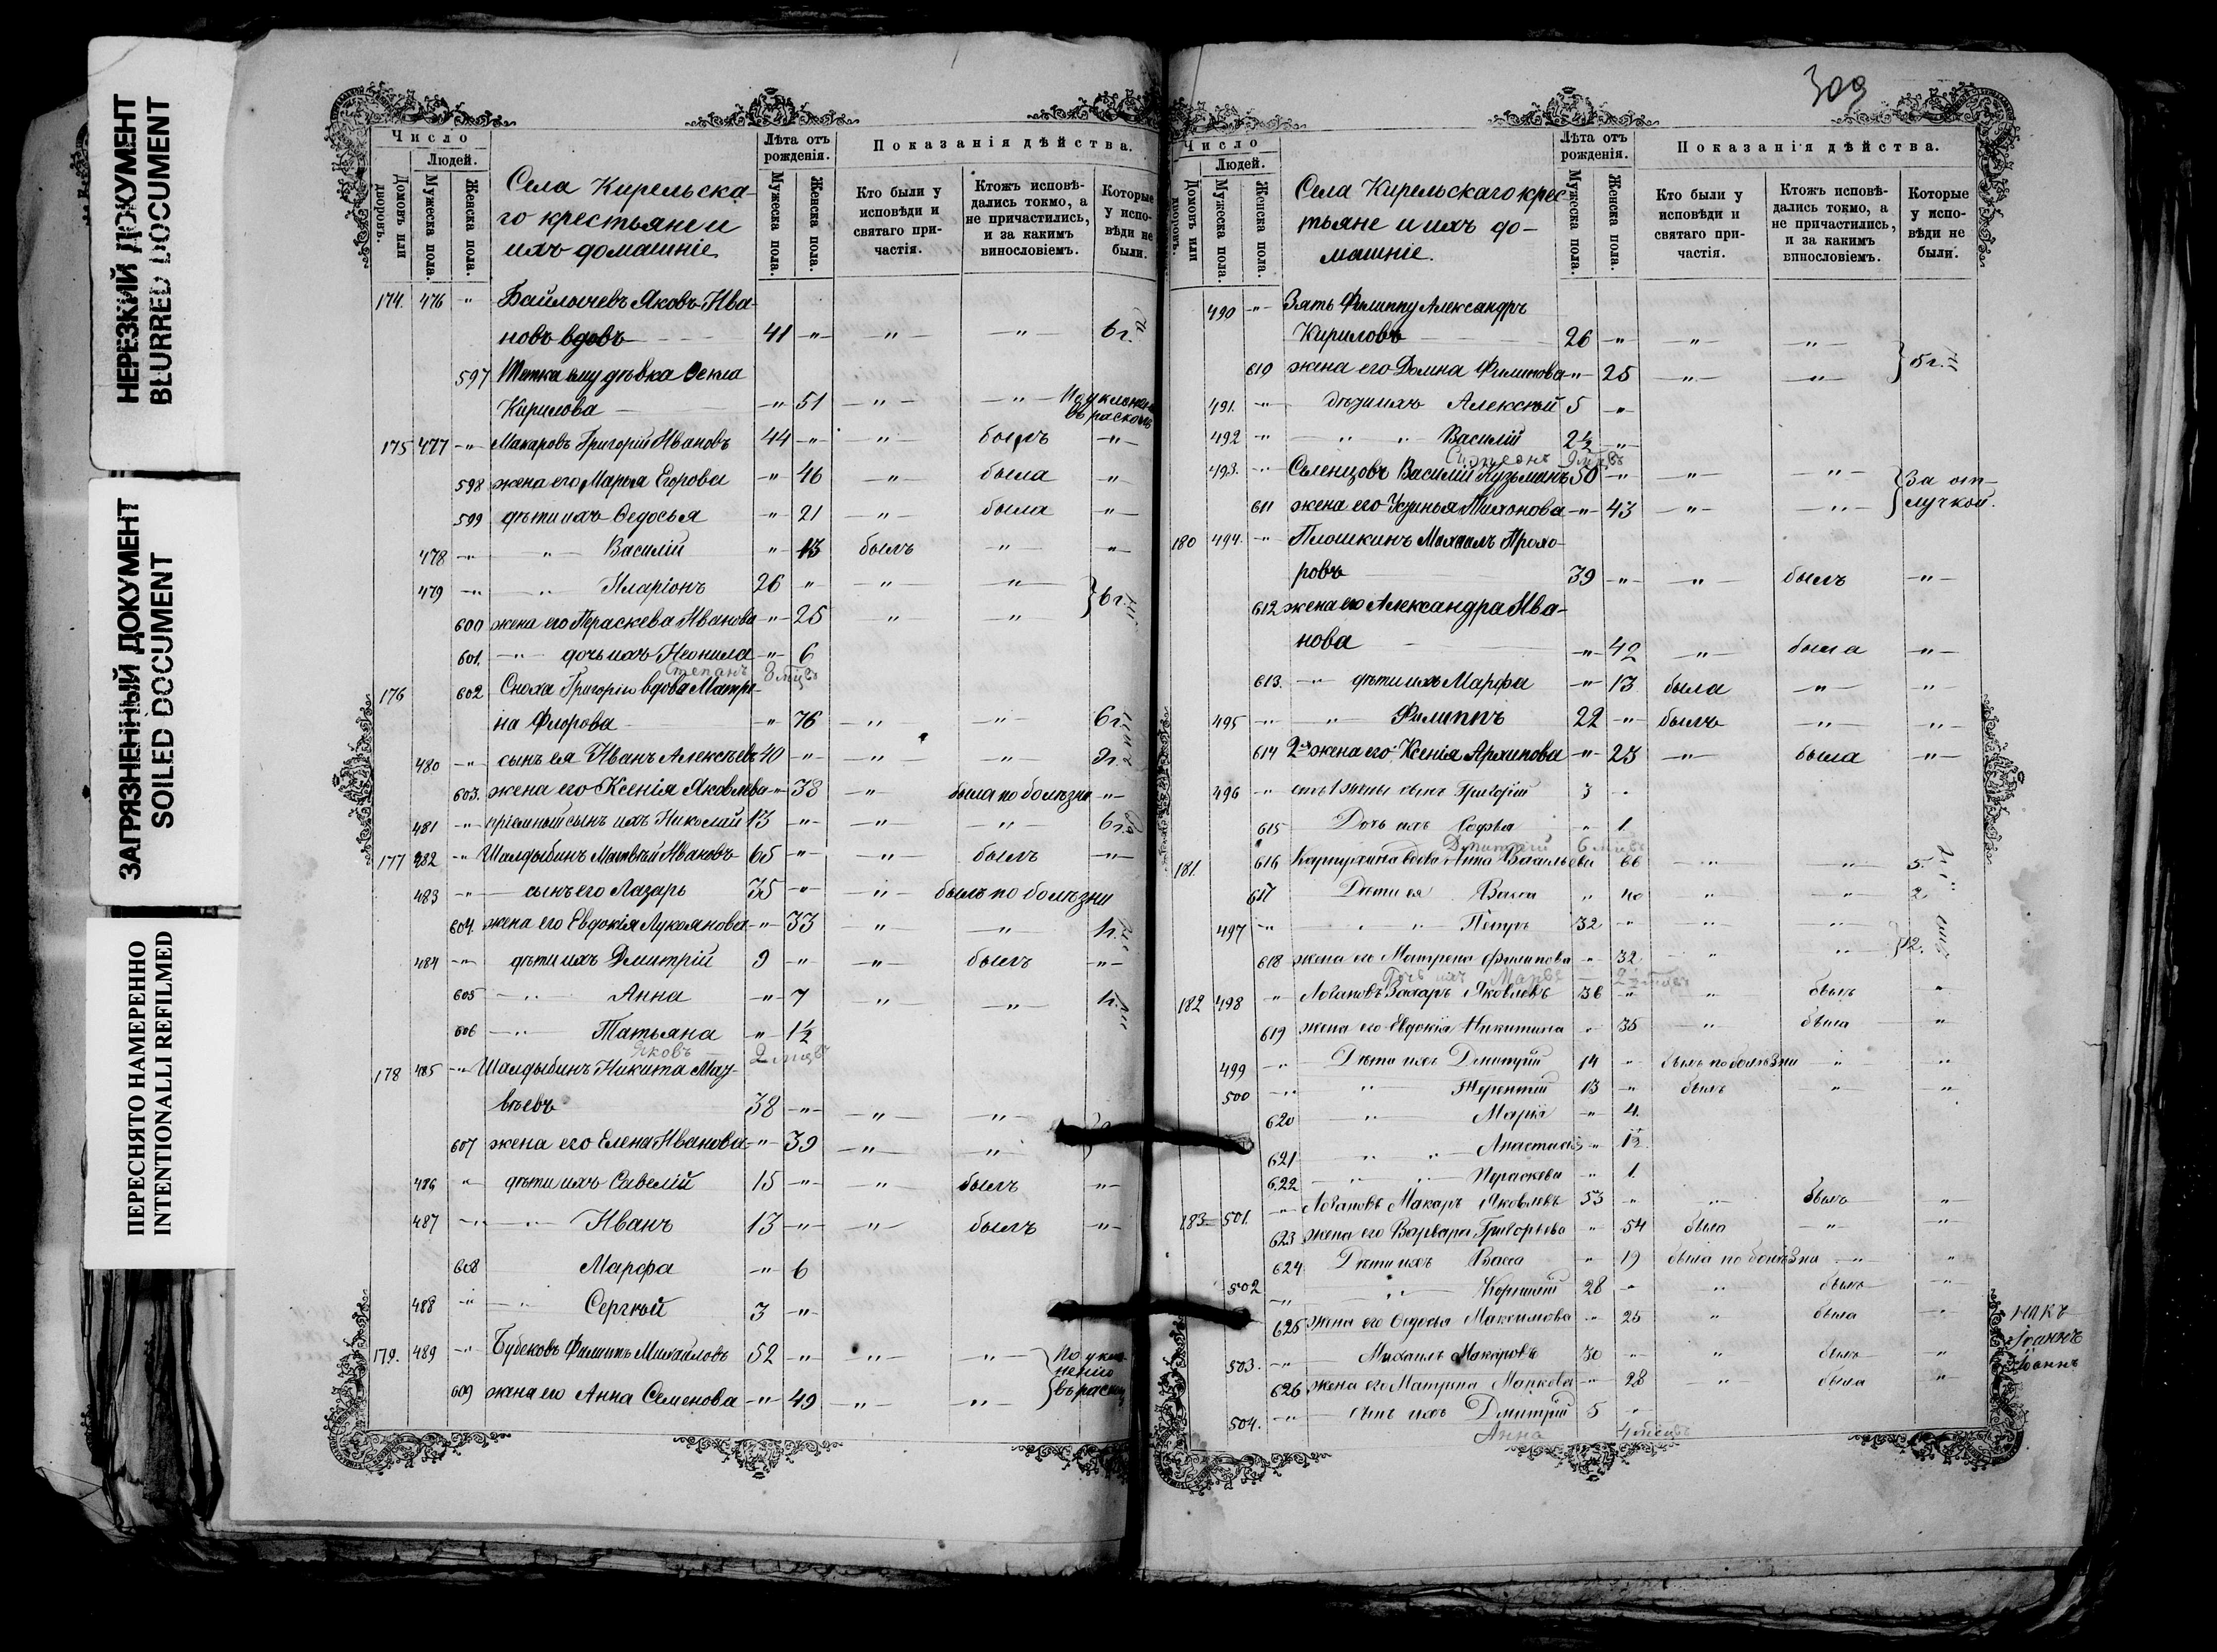 НЕРЕЗКИЙ ДОКУМЕНТ
BLURRED DOCUMENT
ЗАГРЯЗНЕННЫЙ ДОКУМЕНТ
SOILED DOCUMENT
ПЕРЕСНЯТО НАМЕРЕННО
INTENTIONALLI REFILMED
Число
Людей.
Домовъ или дворовъ.
Мужеска пола.
Женска пола.
Села Кирельска
го крестьяне и
ихъ домашніе
Лѣта отъ рожденія.
Мужеска пола.
Женска пола.
Показанія дѣйства.
Кто были у исповѣди и святаго причастія.
Ктожъ исповѣдались токмо, а не причастились, и за какимъ винословіемъ.
Которые у исповѣди не были.
174. 476 -„- Байлычевъ Яковъ Ива
новъ вдовъ 41 -„- -„- -„- 6 г.
597 Тетка ему дѣвка Ѳекла
Кирилова -„- 51 -„- -„-
175 477 -„- Макаровъ Григорій Ивановъ 44 -„- -„- былъ -„-
598 жена его Марья Егорова -„- 46 -„- была -„-
599 дѣти ихъ Ѳедосья -„- 21 -„- была -„-
478 -„- -„- Василій -„- 13 былъ -„- -„-
479 -„- -„- Иларіонъ 26 -„- -„- -„- } 6 г.
600 жена его Параскева Иванова -„- 25 -„- -„-
601. -„- дочь ихъ Неонила -„- 6
Степанъ 8 мцвъ
176 602 Сноха Григорію вдова Матре-
на Флорова -„- 76 -„- -„- 6 г.
480 -„- сынъ ея Иванъ Алексѣевъ 40 -„- -„- -„- 2 г.
603. жена его Ксенія Яковлева -„- 38 -„- была по болѣзни -„-
481 -„- пріемный сынъ ихъ Николай 13 -„- -„- -„- 6 г.
177 482 -„- Шалдыбинъ Матвѣй Ивановъ 65 -„- -„- былъ -„-
483 -„- сынъ его Лазарь 35 -„- -„- былъ по болѣзни
604. жена его Евдокія Лукоянова -„- 33 -„- -„-
484 -„- дѣти ихъ Дмитрій 9 -„- -„- былъ -„-
605 -„- Анна -„- 7 -„- -„-
606 -„- Татьяна -„- 1½
Яковъ 2 мцвъ
178 485 -„- Шалдыбинъ Никита Мат-
вѣевъ 38 -„- -„- -„-
607 жена его Елена Иванова -„- 39 -„- -„-
486 -„- дѣти ихъ Савелій 15 -„- -„- былъ -„-
487 -„- -„- Иванъ 13 -„- -„- былъ -„-
608 Марѳа -„- 6
488 -„- -„- Сергѣй 3 -„-
179. 489 -„- Бубековъ Филипъ Михайловъ 52 -„- -„- -„-
609 жена его Анна Семенова -„- 49 -„- -„-
309
Число
Людей.
Домовъ или дворовъ.
Мужеска пола.
Женска пола.
Села Кирельскаго крес
тьяне и ихъ до-
машніе.
Лѣта отъ рожденія.
Мужеска пола.
Женска пола.
Показанія дѣйства.
Кто были у исповѣди и святаго причастія.
Ктожъ исповѣдались токмо, а не причастились, и за какимъ винословіемъ.
Которые у исповѣди не были.
490 -„- Зять Филиппу Александръ
Кириловъ 26 -„- -„- -„- } 5 г.
610 жена его Домна Филипова -„- 25 -„- -„-
491. -„- дѣти ихъ Алексѣй 5 -„-
492 -„- -„- -„- Василій 2½ -„-
Симеонъ 9 мцвъ
493. -„- Селенцовъ Василій Кузьминъ 50 -„- -„- -„- } За от-
611 жена его Устинья Тихонова -„- 43 -„- -„- лучкой.
180 494. -„- Плошкинъ Михаилъ Прохо-
ровъ 39 -„- -„- былъ -„-
612 жена его Александра Ива-
нова -„- 42 -„- была -„-
613. -„- дѣти ихъ Марѳа -„- 13 была -„- -„-
495 -„- -„- Филиппъ 22 -„- былъ -„- -„-
614 2я жена его Ксенія Архипова -„- 23 -„- была -„-
496 -„- отъ 1 жены сынъ Григорій 3 -„-
615 Дочь ихъ Софья -„- 1.
Дмитрій 6 мцвъ
181. 616 вдова Анна Васильева 66 -„- -„- 5.
617 Дѣти ея Васса -„- 40 -„- -„- 2
497 -„- -„- -„- Петръ 32 -„- -„- -„- } 12.
618 жена его Матрена Филипова -„- 32 -„- -„-
Дочь ихъ Марѳа
182 498 -„- Логановъ Захаръ Яковлевъ 36 -„- -„- былъ -„-
619 жена его Евдокія Никитина -„- 35 -„- была -„-
499 -„- Дѣти ихъ Дмитрій 14 -„- былъ по болѣзни -„- -„-
500 -„- -„- Терентій 13 -„- былъ -„- -„-
620 -„- Марія -„- 4.
621 -„- -„- Анастасія -„- 1½
622 -„- -„- Параскева -„- 1.
183. 501. -„- Логановъ Макаръ Яковлевъ 53 -„- -„- былъ -„-
623 жена его Варвара Григорьева -„- 54 была -„- -„-
624 Дѣти ихъ Васса -„- 19 была по болѣзни -„- -„-
502 -„- -„- Корнилій 28 -„- -„- былъ -„-
625 жена его Ѳедосья Максимова -„- 25 -„- была -„-
503. -„- Михаилъ Макаровъ 30 -„- -„- былъ -„-
626 жена его Матрена Маркова -„- 28 -„- была -„-
504. -„- сынъ ихъ Дмитрій 5 -„-
Анна 4 мцевъ
Іоаннъ
Іоаннъ